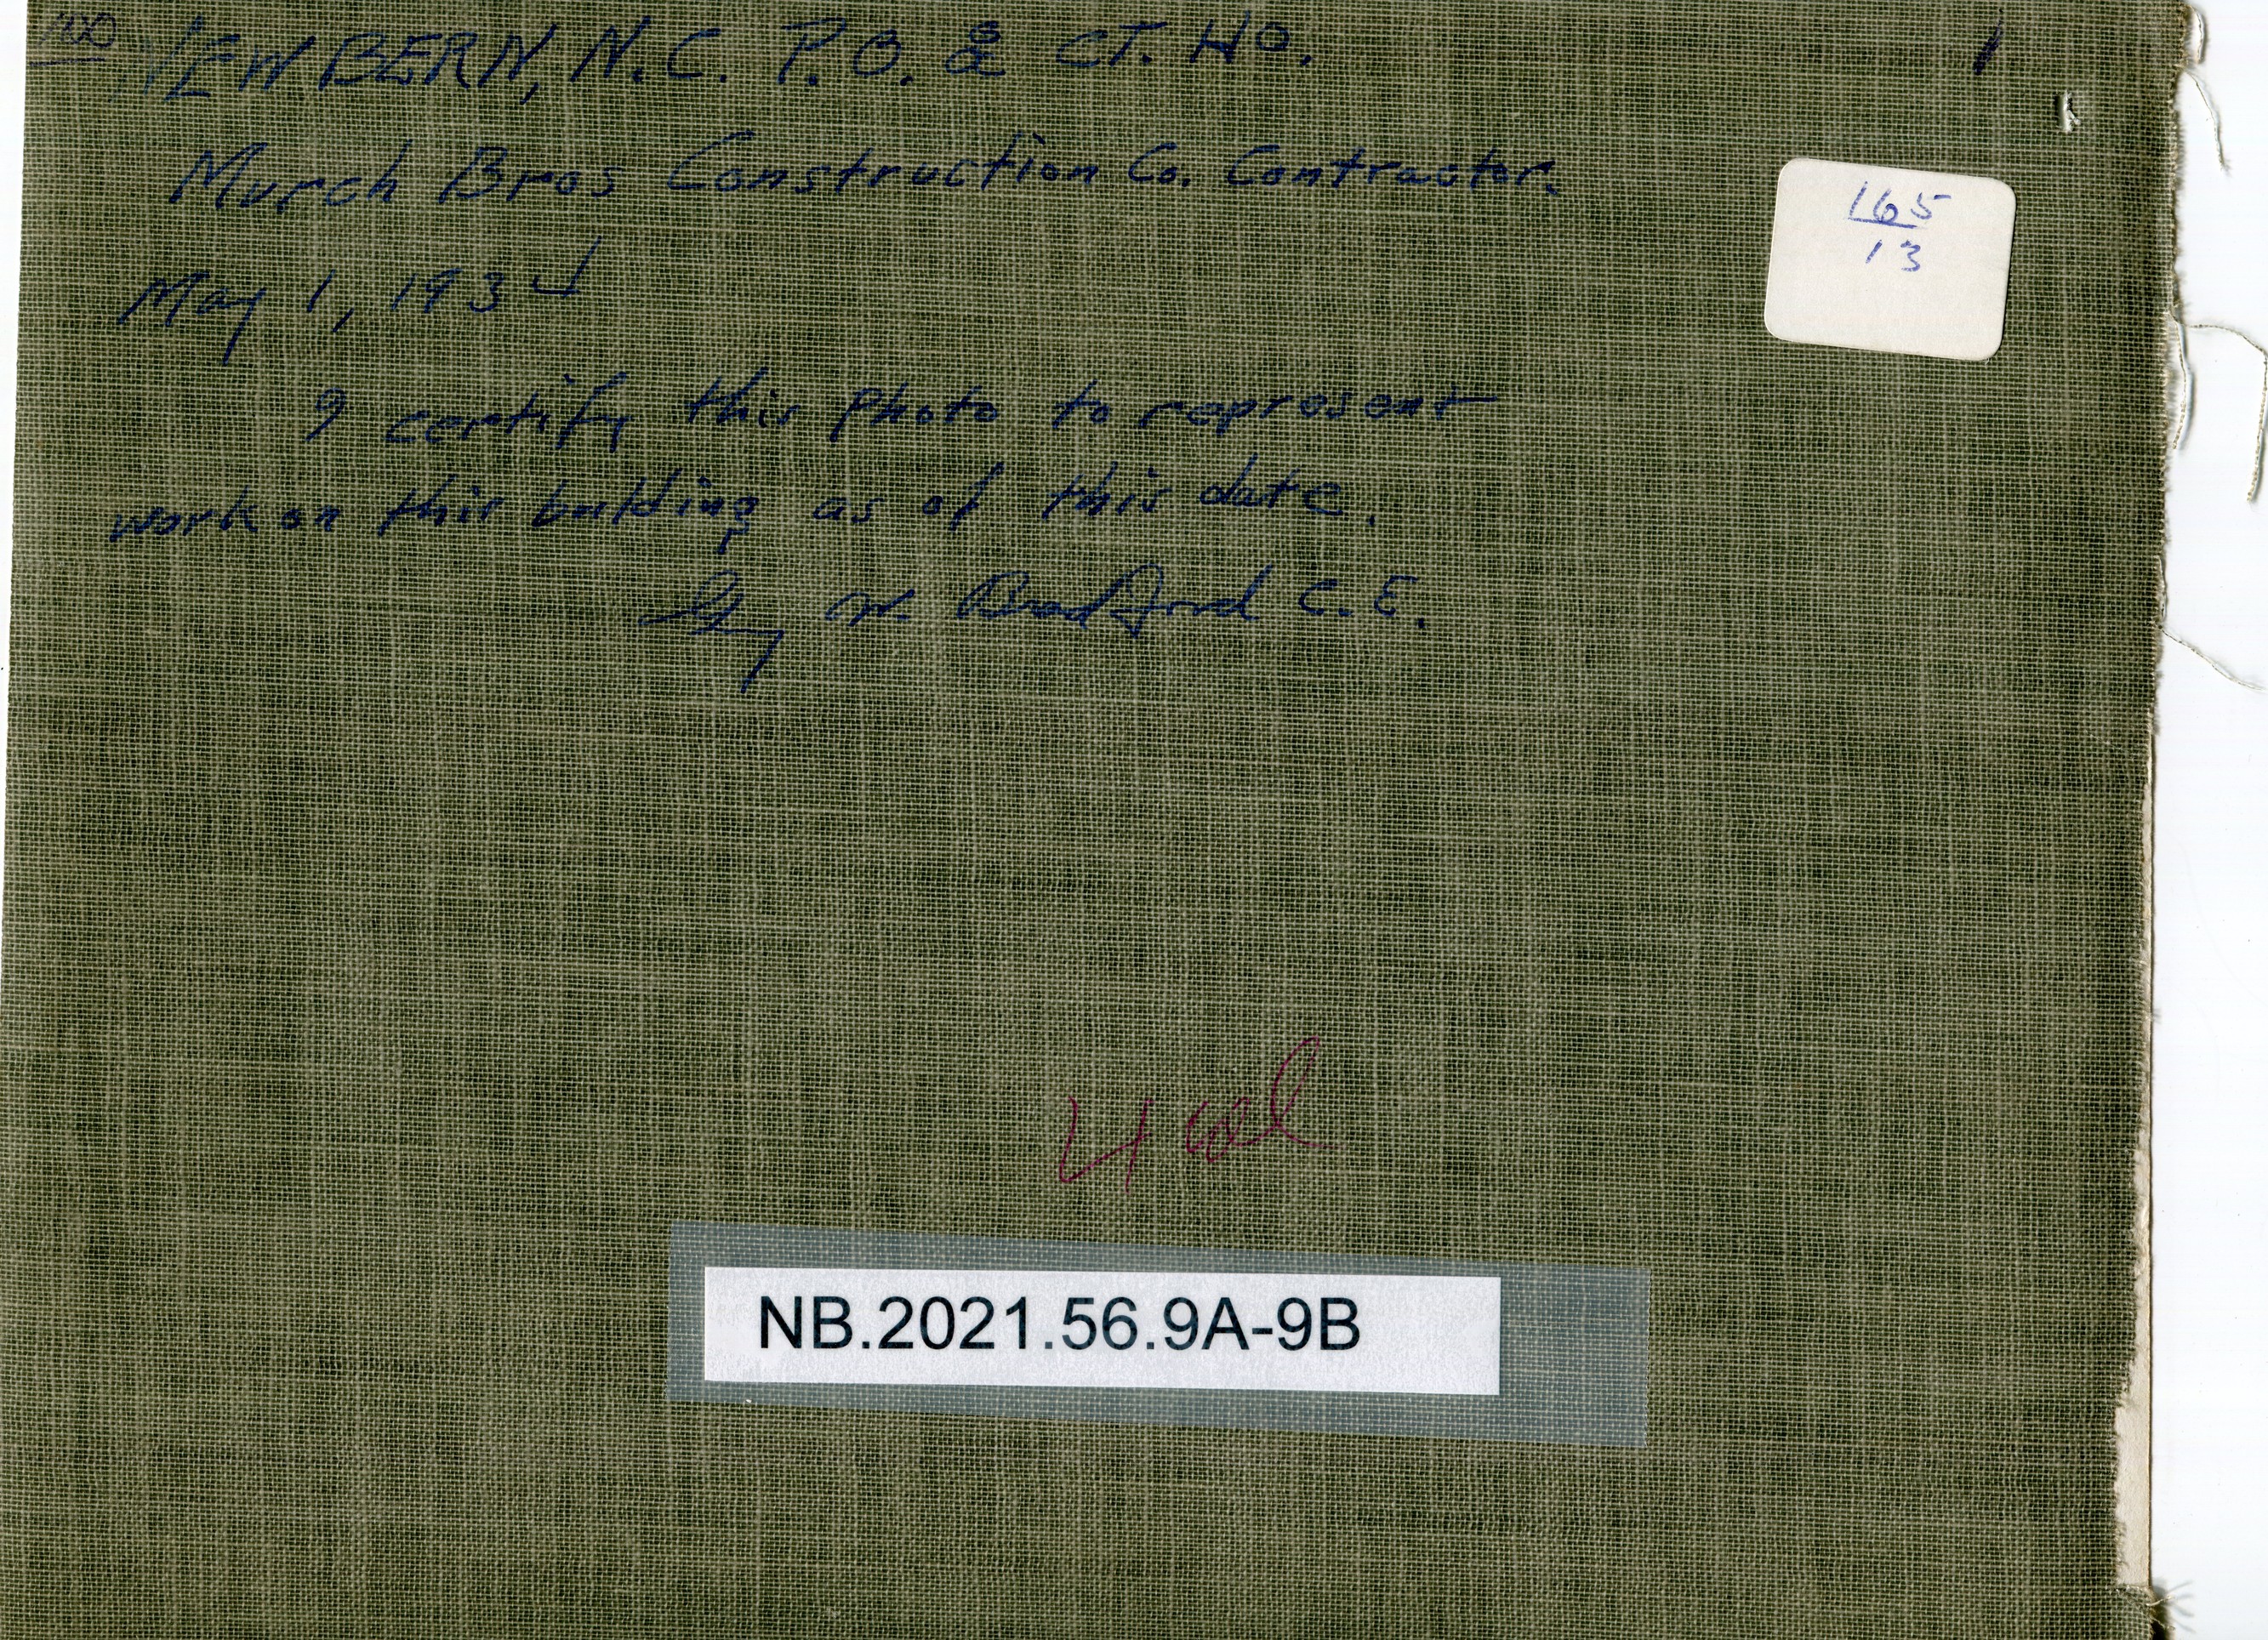 100
NEW BERN, N.C. P.O. & CT. HO.
1
Murch Bros Construction Co. Contractor.
165
13
May 1, 1934
I certify this photo to represent
work on this building as of this date.
Guy W. Bradford C.E.
4 col
NB.2021.56.9A-9B